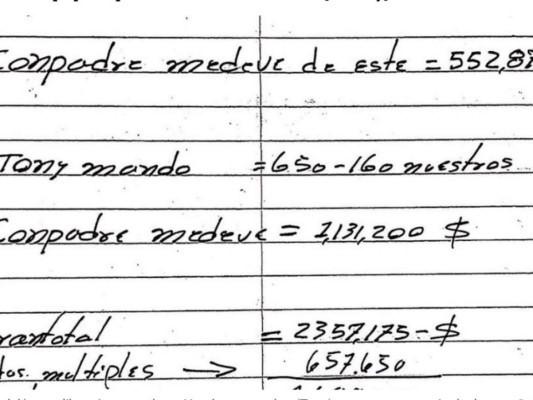 Conpadre medeve de este = 552,8
Tony mando = 650-160 nuestros
Conpadre medeve = 1,131,200 $
rantotal = 2357,175-$
tos. multiples → 657.650